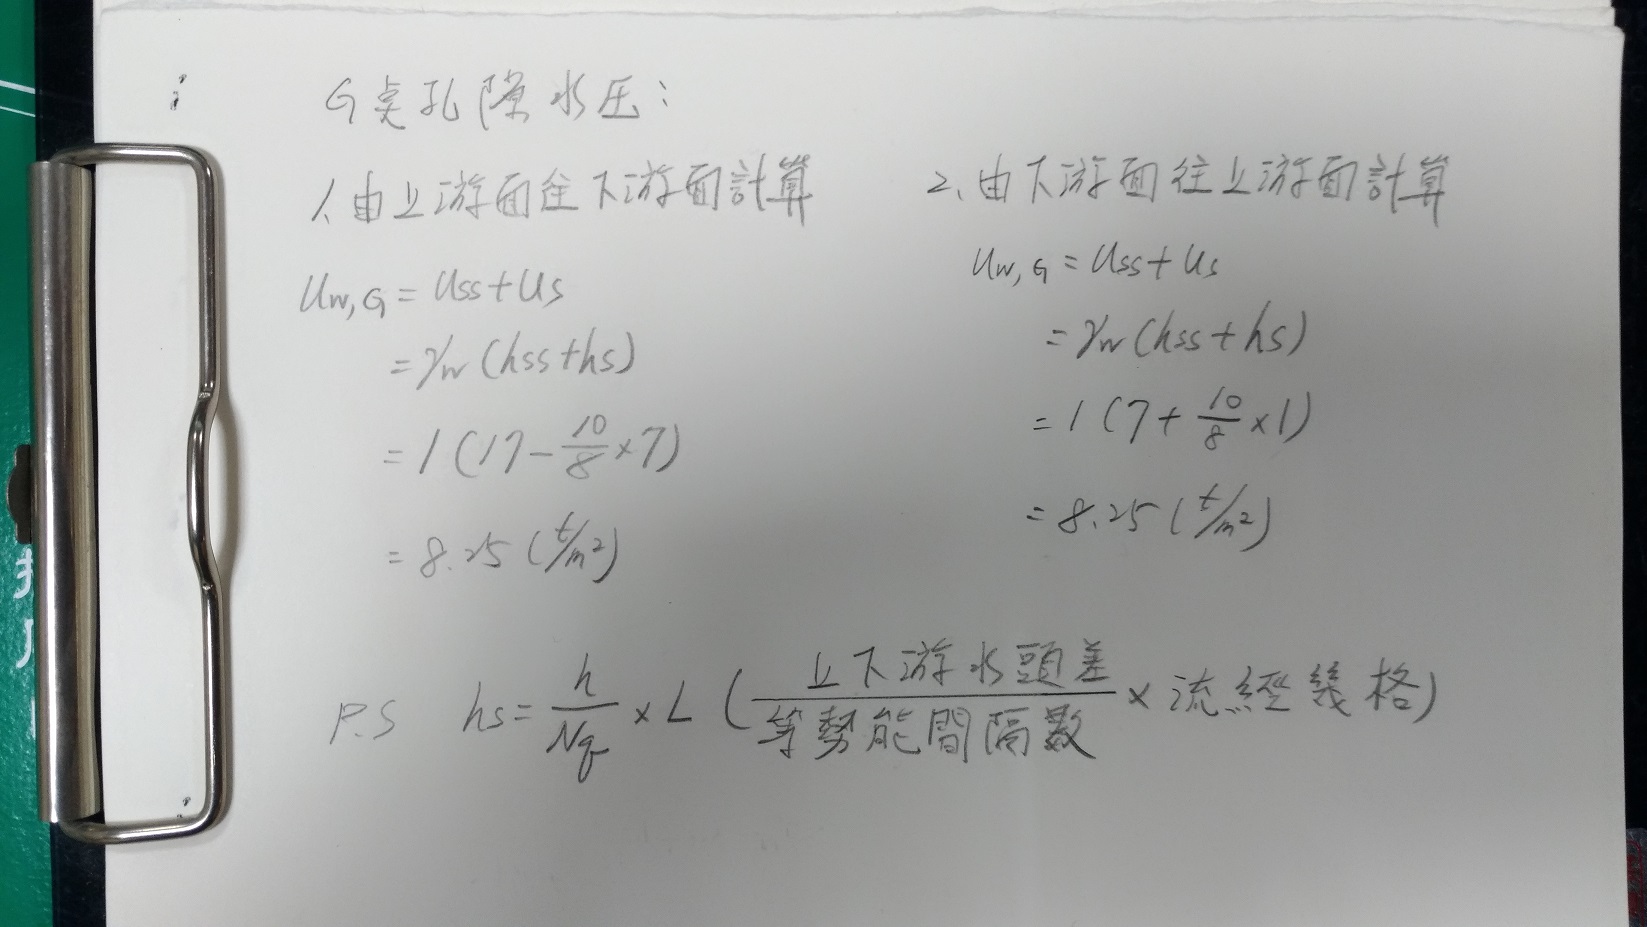 G點孔隙水压:
1、由上游面往下游面計算
Uw,G = Uss+Us
=γw(hss+hs)
=1(17-10/8×7)
=8.25(t/m²)
2、由下游面往上游面計算
Uw,G = Uss+Us
=γw(hss+hs)
=1(7+10/8×1)
=8.25(t/m²)
P.S hs=h/Nq×L(上下游水頭差/等勢能間隔数×流經幾格)